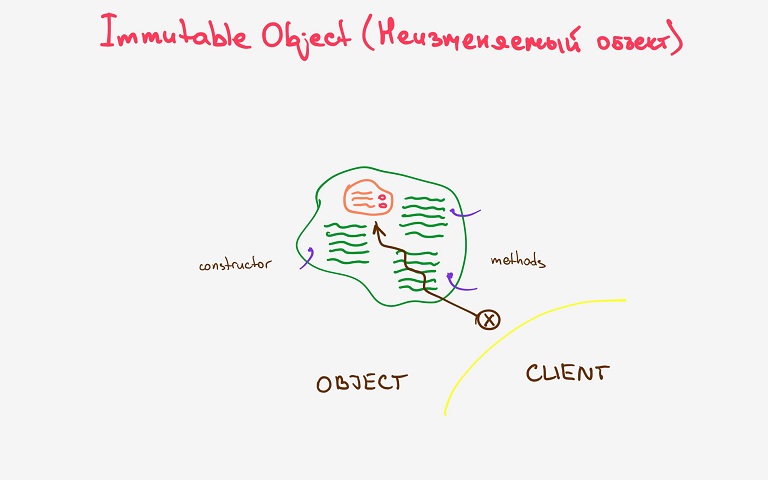 Immutable Object (Неизменяемый объект)
constructor
methods
X
OBJECT
CLIENT